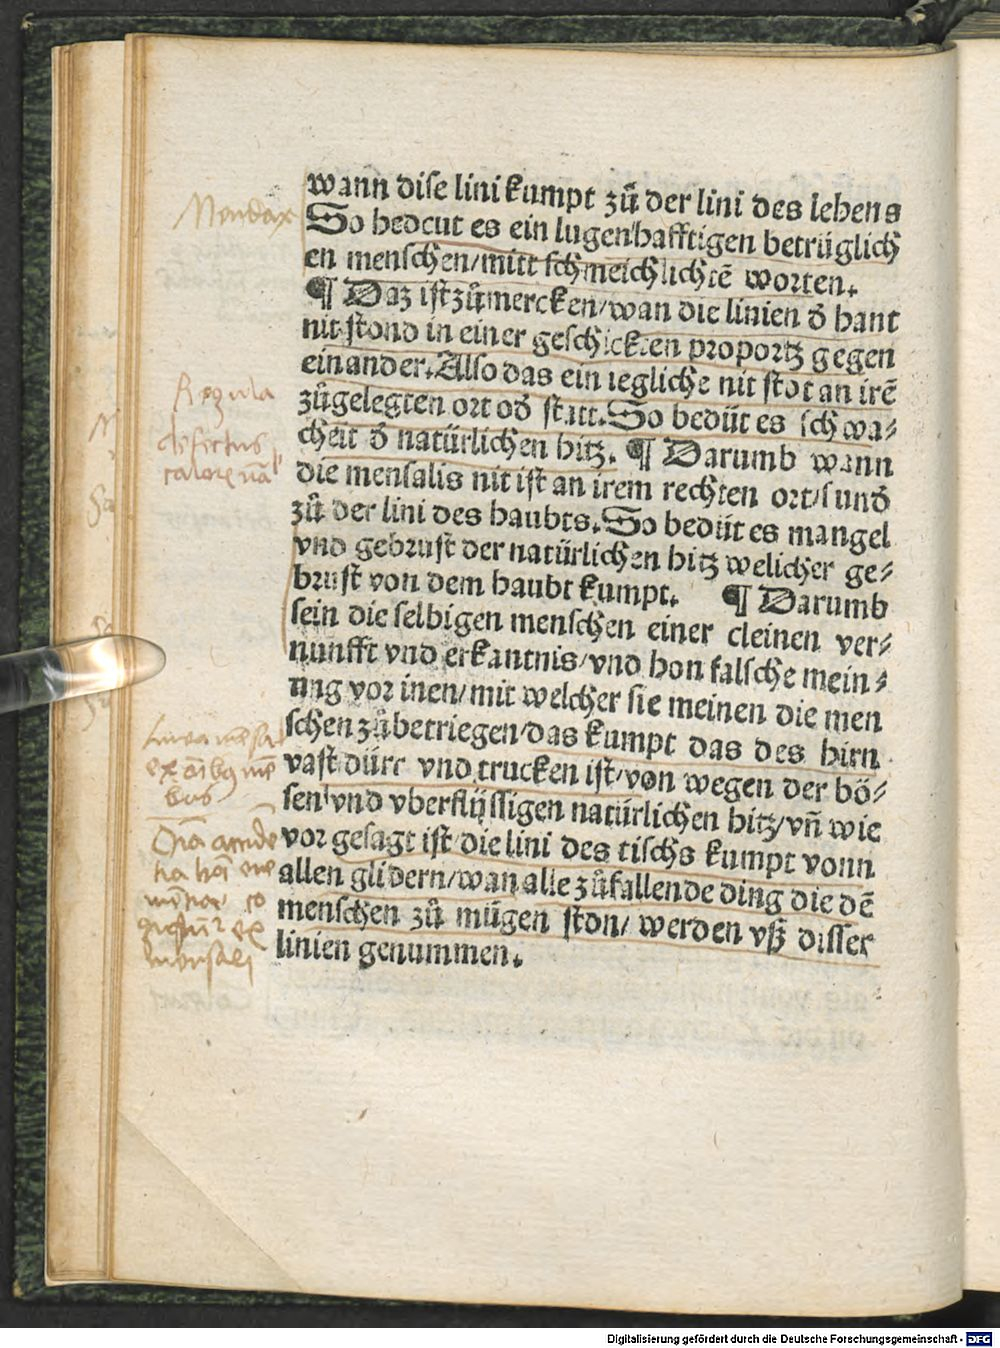 wann dise lini kumpt zů der lini des lebens
So bedeut es ein lugenhafftigen betrüglich
en menschen/mitt schmeichlichtē worten.
¶ Daz ist zůmercken/wan die linien d̄ hant
nit stond in einer geschickten proportz gegen
einander. Also das ein iegliche nit stot an irē
zůgelegten ort od̄ statt. So bedüt es schwa⸗
cheit d̄ natürlichen hitz. ¶ Darumb wann
die mensalis nit ist an irem rechten ort/sund̄
zů der lini des haubts. So bedüt es mangel
vnd gebrust der natürlichen hitz welicher ge⸗
brust von dem haubt kumpt. ¶ Darumb
sein die selbigen menschen einer cleinen ver⸗
nunfft vnd erkantnis/vnd hon falsche mein⸗
ung vor inen/mit welcher sie meinen die men
schen zů betriegen/das kumpt das des hirn
vast dürr vnd trucken ist/von wegen der bö⸗
sen vnd vberflüssigen natürlichen hitz/vn̄ wie
vor gesagt ist/die lini des tischs kumpt vonn
allen glidern/wan alle zůfallende ding die dē
menschen zů mügen ston/werden vß disser
linien genummen.
Mendax
Regula
defectus
calore nāl
Linea mēsal
ex oībq mē
bris
Oīa accidē
mensali
Digitalisierung gefördert durch die Deutsche Forschungsgemeinschaft - DFG